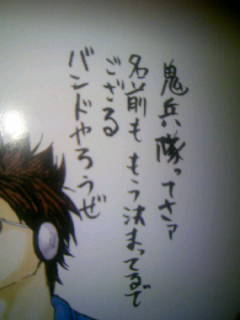 鬼兵隊ってさァ
名前ももう決まってるで
ござる
バンドやろうぜ